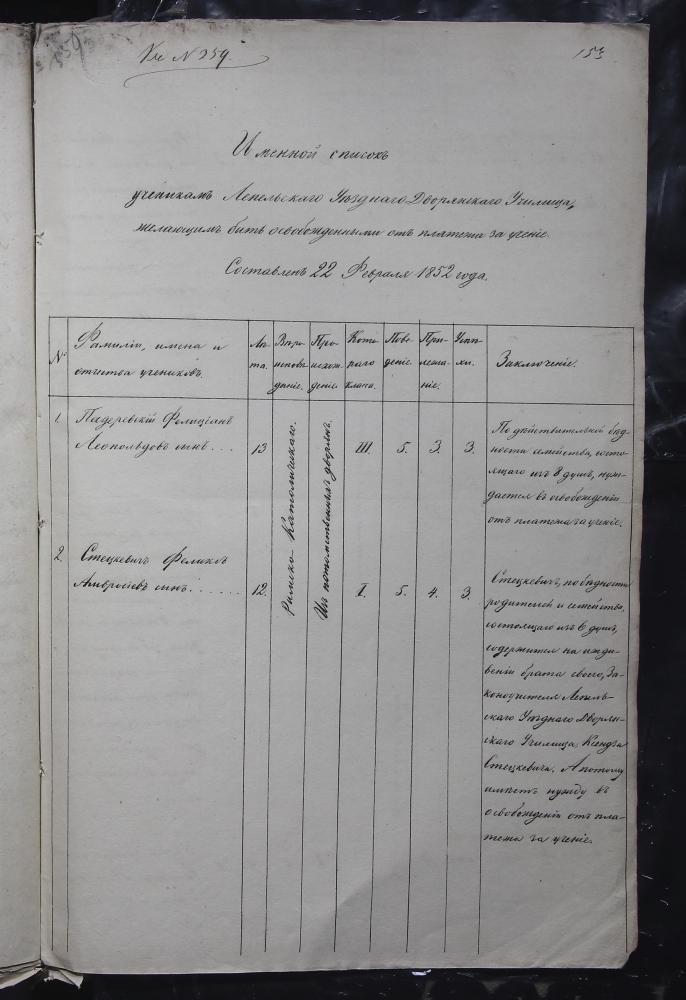 Къ № 259.
153
Именной списокъ
ученикамъ Лепельскаго Уѣзднаго Дворянскаго Училища,
желающимъ быть освобожденными отъ платежа за ученіе.
Составленъ 22 Февраля 1852 года.
№
Фамиліи, имена и
отчества учениковъ.
Лѣ-
та.
Вѣро-
исповѣ-
даніе.
Про-
исхож-
деніе.
Кото-
раго
класса.
Пове-
деніе.
При-
лежа-
ніе.
Успѣ-
хи.
Заключеніе.
1.
Падеревскій Фелиціанъ
Леопольдовъ сынъ . . .
13
Римско-Католическаго.
Изъ потомственныхъ дворянъ.
III.
5.
3.
3.
По дѣйствительной бѣд-
ности семейства, состо-
ящаго изъ 8 душъ, нуж-
дается въ освобожденіи
отъ платежа за ученіе.
2.
Стецкевичъ Феликсъ
Амвросіевъ сынъ . . . . . .
12.
I.
5.
4.
3.
Стецкевичъ, по бѣдности
родителей и семейства,
состоящаго изъ 6 душъ,
содержится на ижди-
веніи брата своего, За-
коноучителя Лепель-
скаго Уѣзднаго Дворян-
скаго Училища, Ксендза
Стецкевича. А потому
имѣетъ нужду въ
освобожденіи отъ пла-
тежа за ученіе.